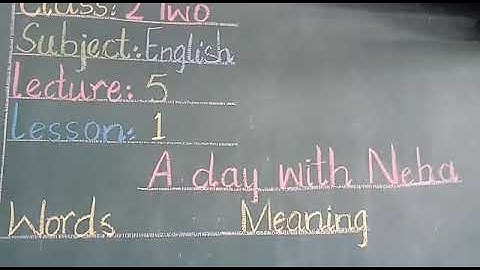 Class: 2 Two
Subject: English
Lecture: 5
Lesson: 1
A day with Neha
Words Meaning